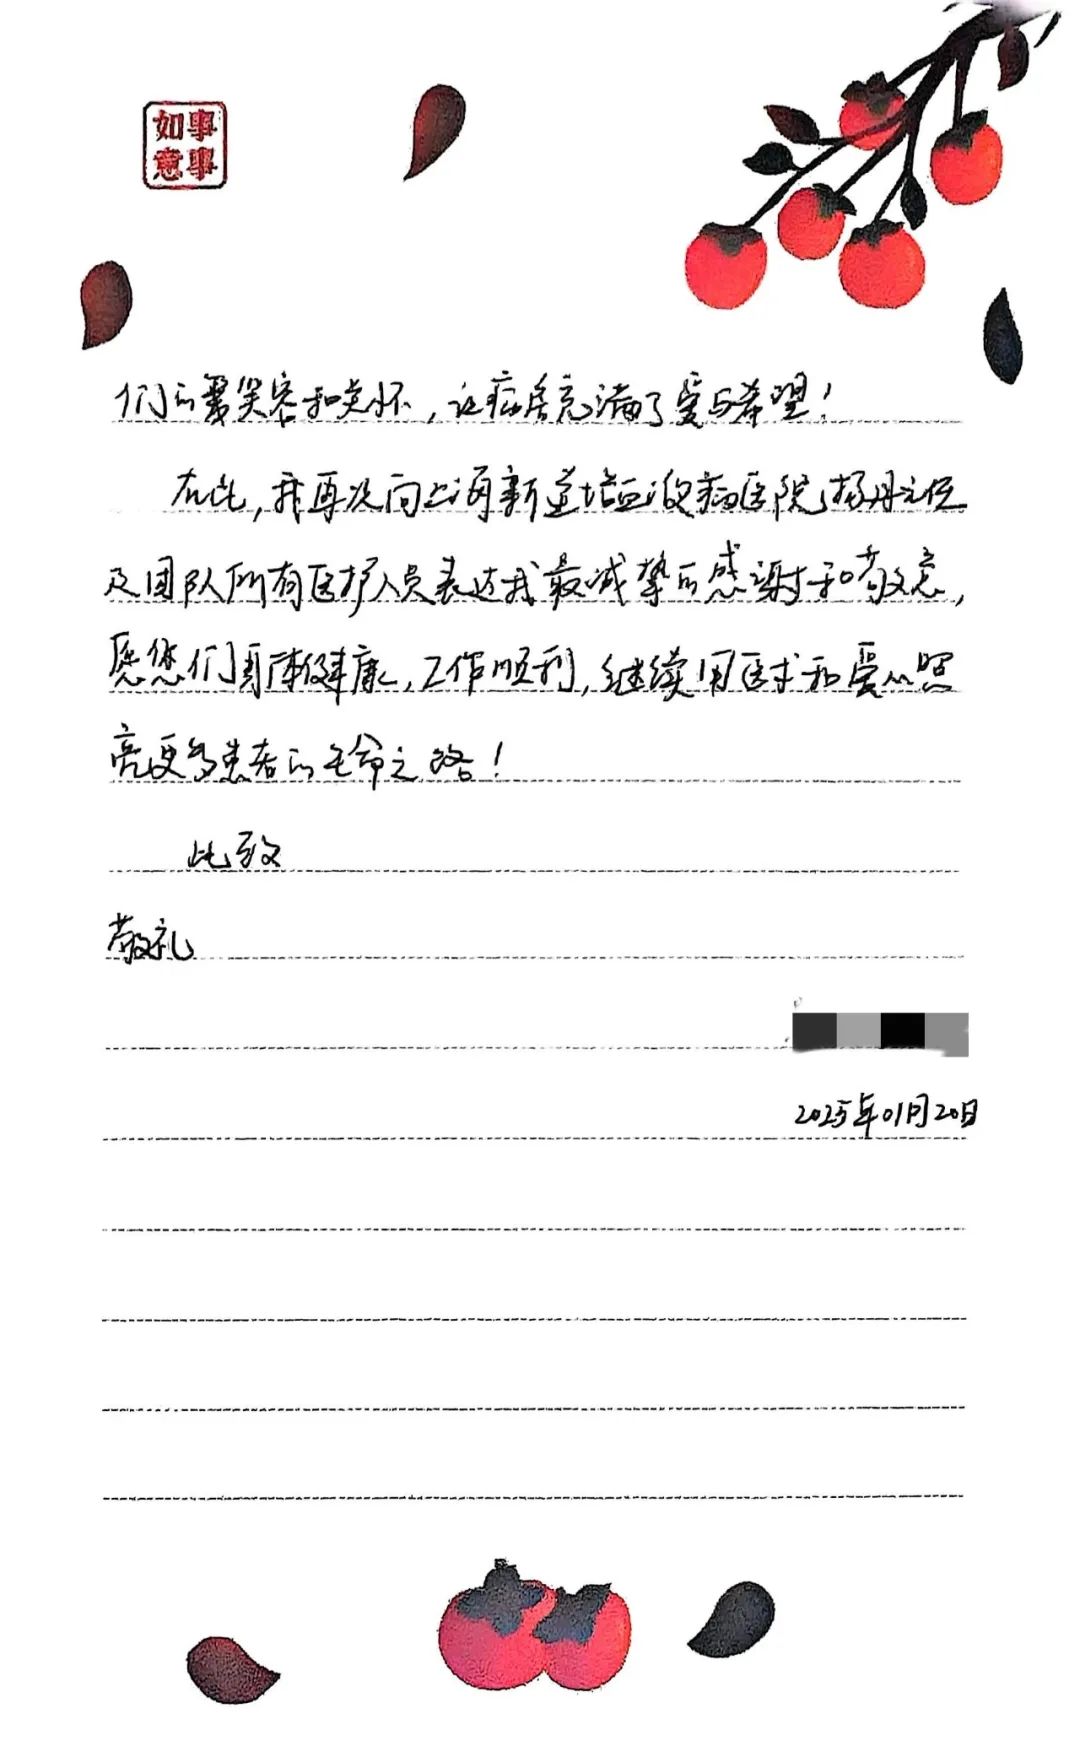 如事
意事
们的笑容和关怀，让病房充满了爱与希望！
在此，我再次向上海新道培血液病医院杨丹主任
及团队所有医护人员表达我最诚挚的感谢和敬意，
愿您们身体健康，工作顺利，继续用医术和爱心照
亮更多患者的生命之路！
此致
敬礼
2025年01月20日